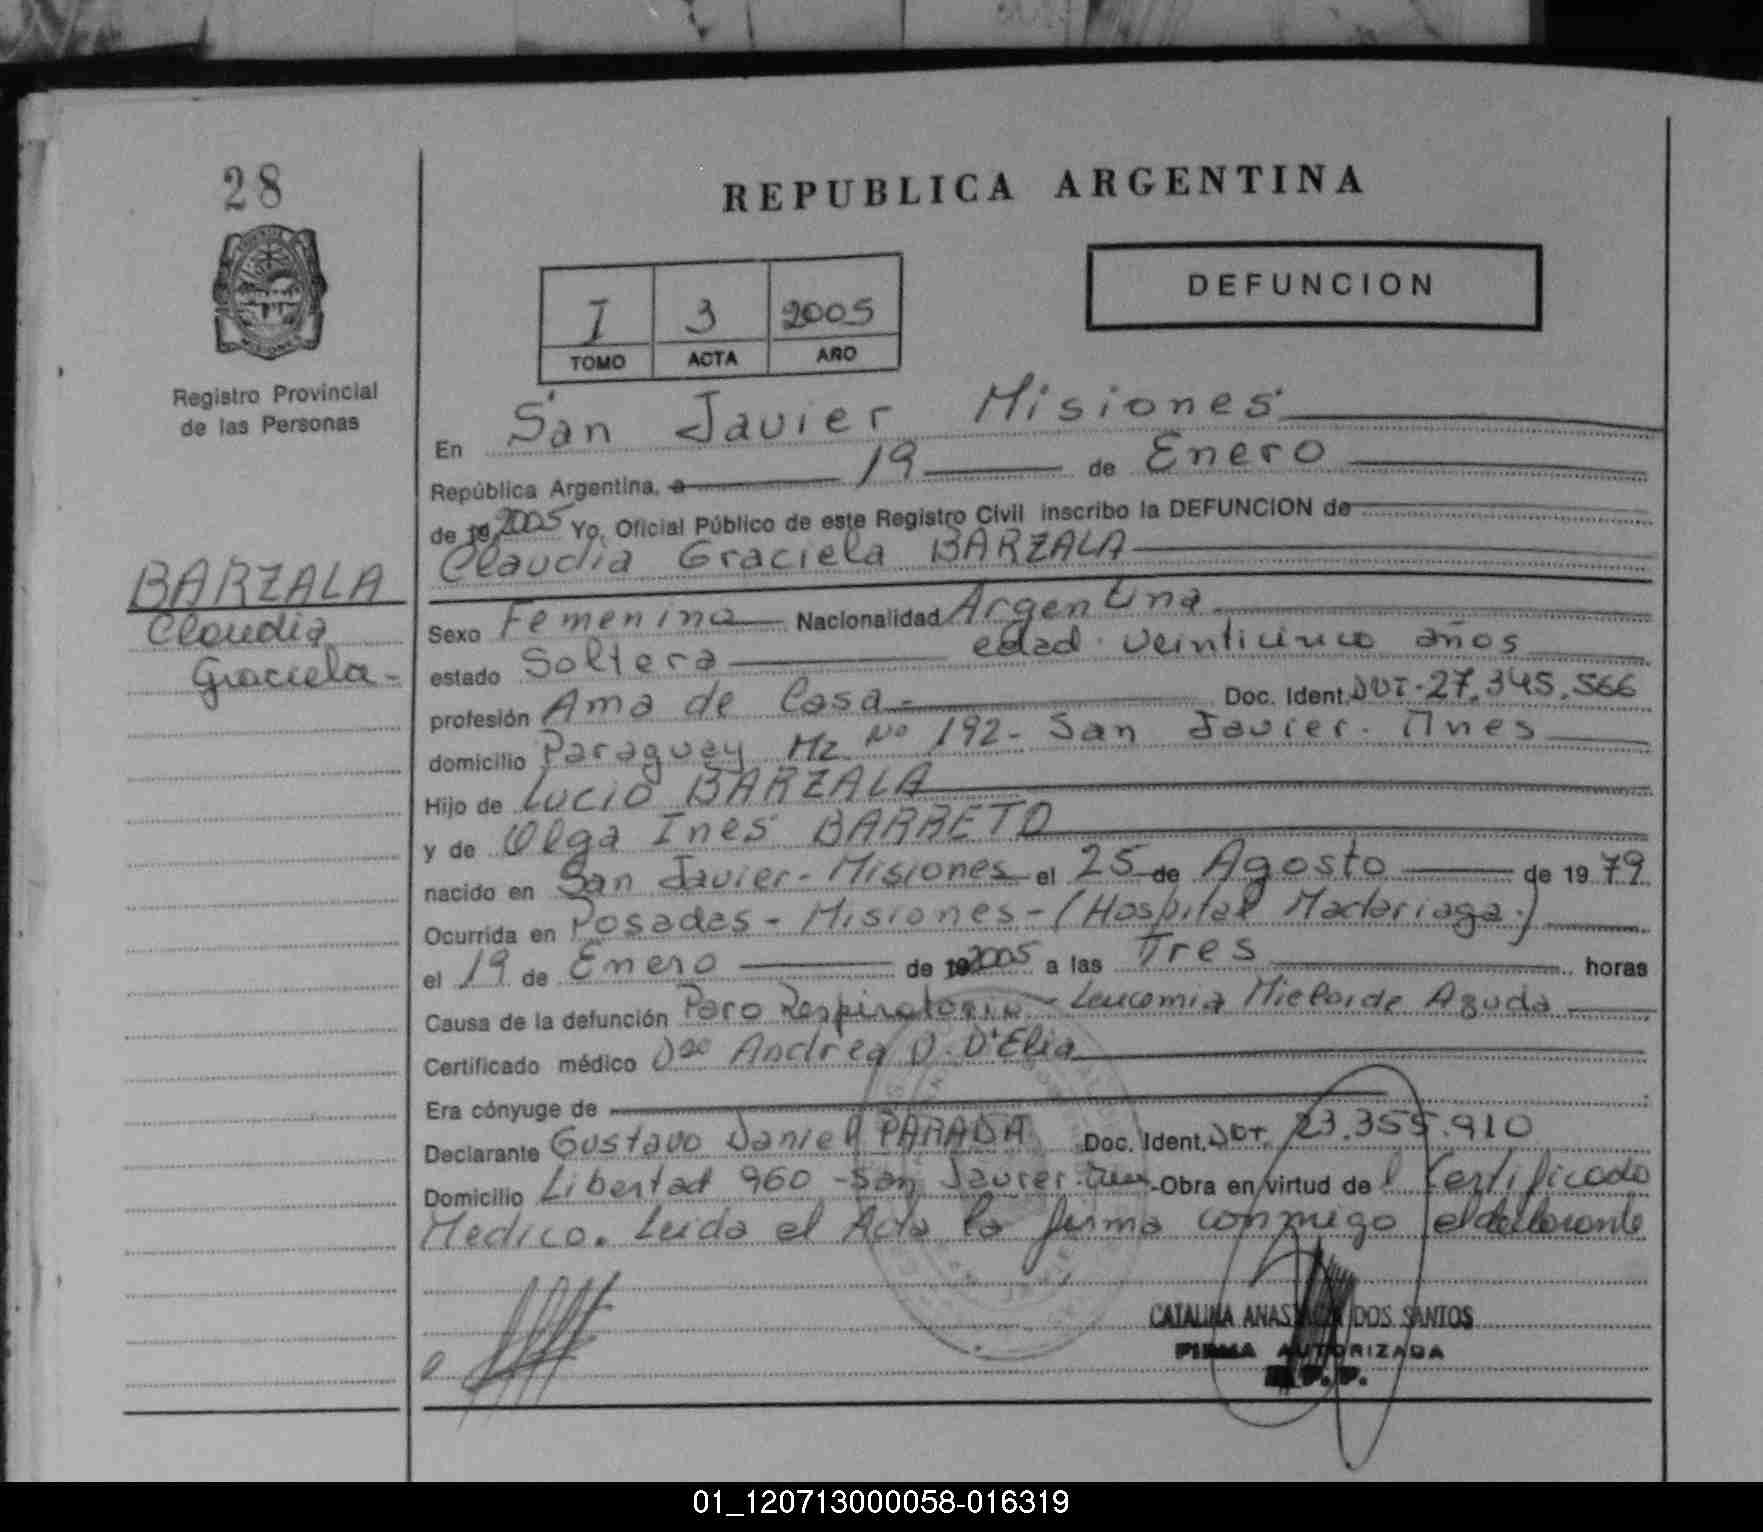 28
REPUBLICA ARGENTINA
DEFUNCION
I 3 2005
TOMO ACTA AÑO
Registro Provincial
de las Personas
BARZALA
Claudia
Graciela-
En San Javier Misiones
República Argentina, a 19 de Enero
de 19 2005 Yo, Oficial Público de este Registro Civil inscribo la DEFUNCION de
Claudia Graciela BARZALA
Sexo Femenino Nacionalidad Argentina
estado Soltera edad veinticinco años
profesión Ama de Casa- Doc. Ident. DNI-27.345.566
domicilio Paraguay Mz Nº 192- San Javier. Mnes
Hijo de Lucio BARZALA
y de Olga Ines BARRETO
nacido en San Javier-Misiones el 25 de Agosto de 1979
Ocurrida en Posadas-Misiones-(Hospital Madariaga.)
el 19 de Enero de 19 2005 a las Tres horas
Causa de la defunción Paro Respiratorio-Leucemia Mieloide Aguda
Certificado médico Dra Andrea D. D'Elia
Era cónyuge de
Declarante Gustavo Daniel PARADA Doc. Ident. DNI. 23.355.910
Domicilio Libertad 960-San Javier. -Obra en virtud de l Certificado
Medico. Leida el Acta la firma conmigo el declarante
CATALINA ANASTACIA DOS SANTOS
FIRMA AUTORIZADA
01_120713000058-016319